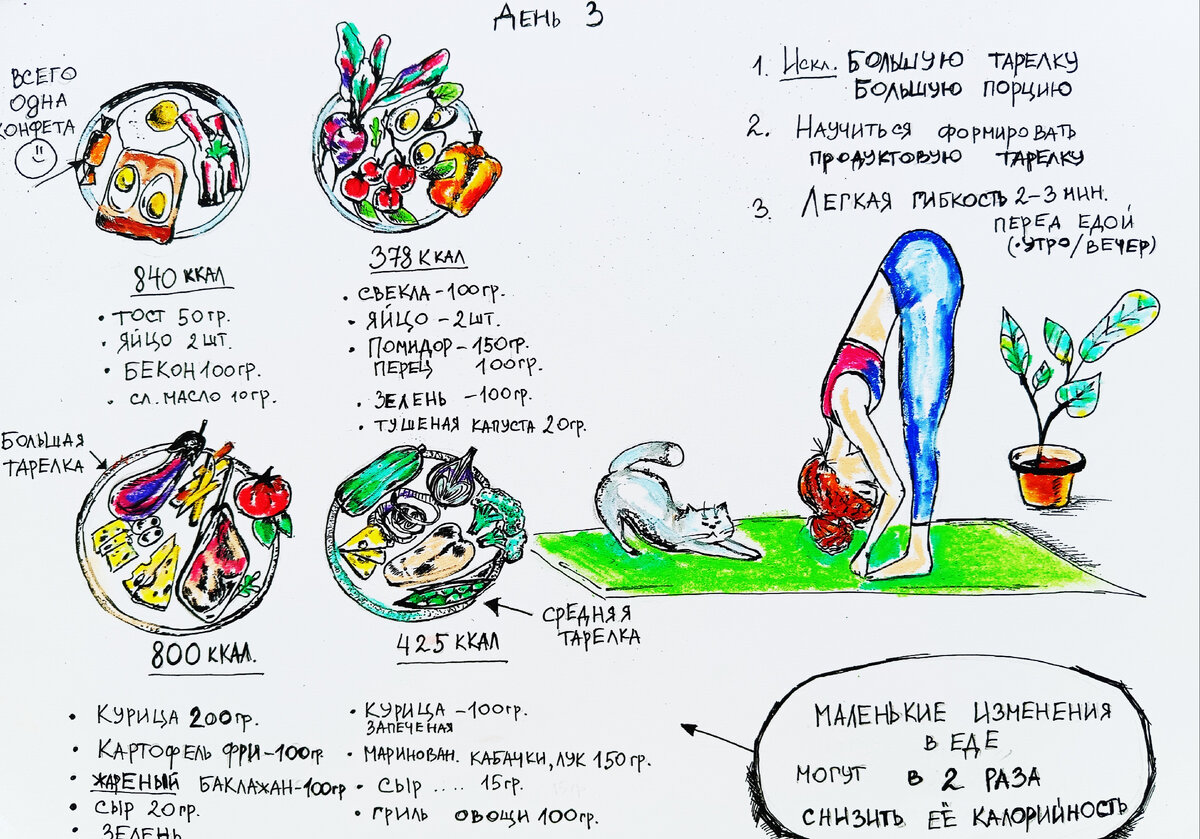 ДЕНЬ 3
ВСЕГО
ОДНА
КОНФЕТА
840 ККАЛ
• ТОСТ 50гр.
• ЯЙЦО 2шт.
• БЕКОН 100гр.
• СЛ. МАСЛО 10гр.
378 ККАЛ
• СВЕКЛА-100гр.
• ЯЙЦО - 2шт.
• ПОМИДОР-150гр.
ПЕРЕЦ 100гр.
• ЗЕЛЕНЬ -100гр.
• ТУШЕНАЯ КАПУСТА 20гр.
1. Искл. БОЛЬШУЮ ТАРЕЛКУ
БОЛЬШУЮ ПОРЦИЮ
2. НАУЧИТЬСЯ ФОРМИРОВАТЬ
ПРОДУКТОВУЮ ТАРЕЛКУ
3. ЛЕГКАЯ ГИБКОСТЬ 2-3 МИН.
ПЕРЕД ЕДОЙ
(·УТРО/ВЕЧЕР)
БОЛЬШАЯ
ТАРЕЛКА
800 ККАЛ.
• КУРИЦА 200гр.
• КАРТОФЕЛЬ ФРИ-100гр
• ЖАРЕНЫЙ БАКЛАЖАН-100гр
• СЫР 20гр.
• ЗЕЛЕНЬ
СРЕДНЯЯ
ТАРЕЛКА
425 ККАЛ
• КУРИЦА -100гр.
ЗАПЕЧЕНАЯ
• МАРИНОВАН. КАБАЧКИ, ЛУК 150гр.
• СЫР .... 15гр.
• ГРИЛЬ ОВОЩИ 100гр.
МАЛЕНЬКИЕ ИЗМЕНЕНИЯ
В ЕДЕ
МОГУТ В 2 РАЗА
СНИЗИТЬ ЕЁ КАЛОРИЙНОСТЬ